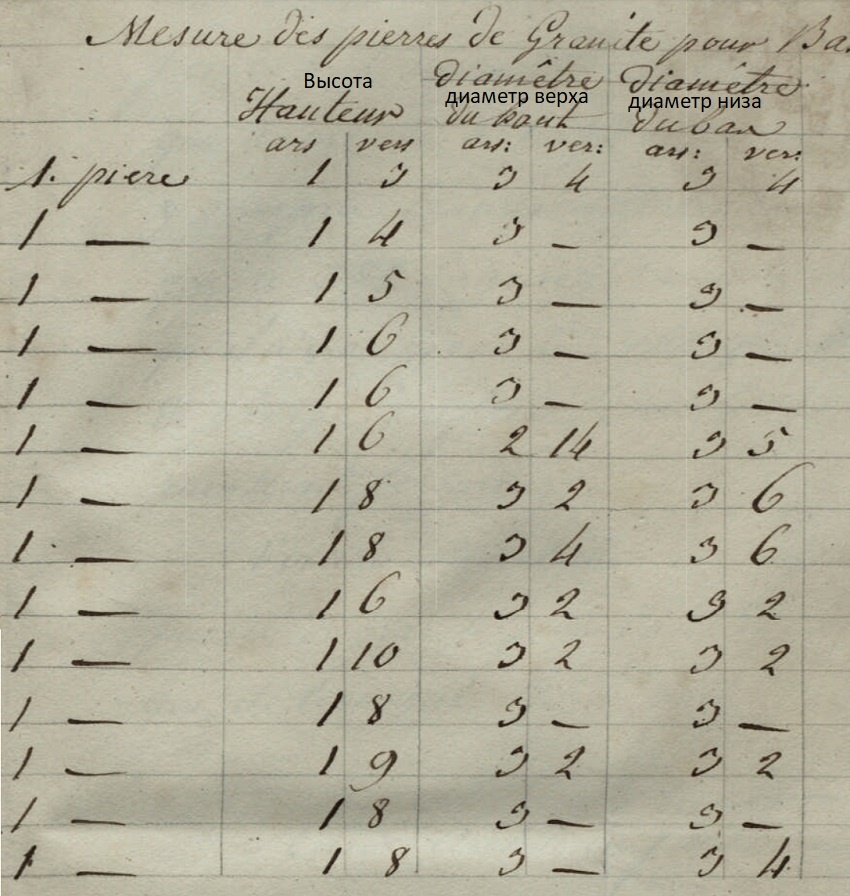 Mesure des pierres de Granite pour Ba
Высота
Hauteur
diamêtre
диаметр верха
du haut
diamêtre
диаметр низа
du bas
ars vers ars: ver: ars: ver:
1. piere 1 3 3 4 3 4
1 — 1 4 3 — 3 —
1 — 1 5 3 — 3 —
1 — 1 6 3 — 3 —
1 — 1 6 3 — 3 —
1 — 1 6 2 14 3 5
1 — 1 8 3 2 3 6
1 — 1 8 3 4 3 6
1 — 1 6 3 2 3 2
1 — 1 10 3 2 3 2
1 — 1 8 3 — 3 —
1 — 1 9 3 2 3 2
1 — 1 8 3 — 3 —
1 — 1 8 3 — 3 4